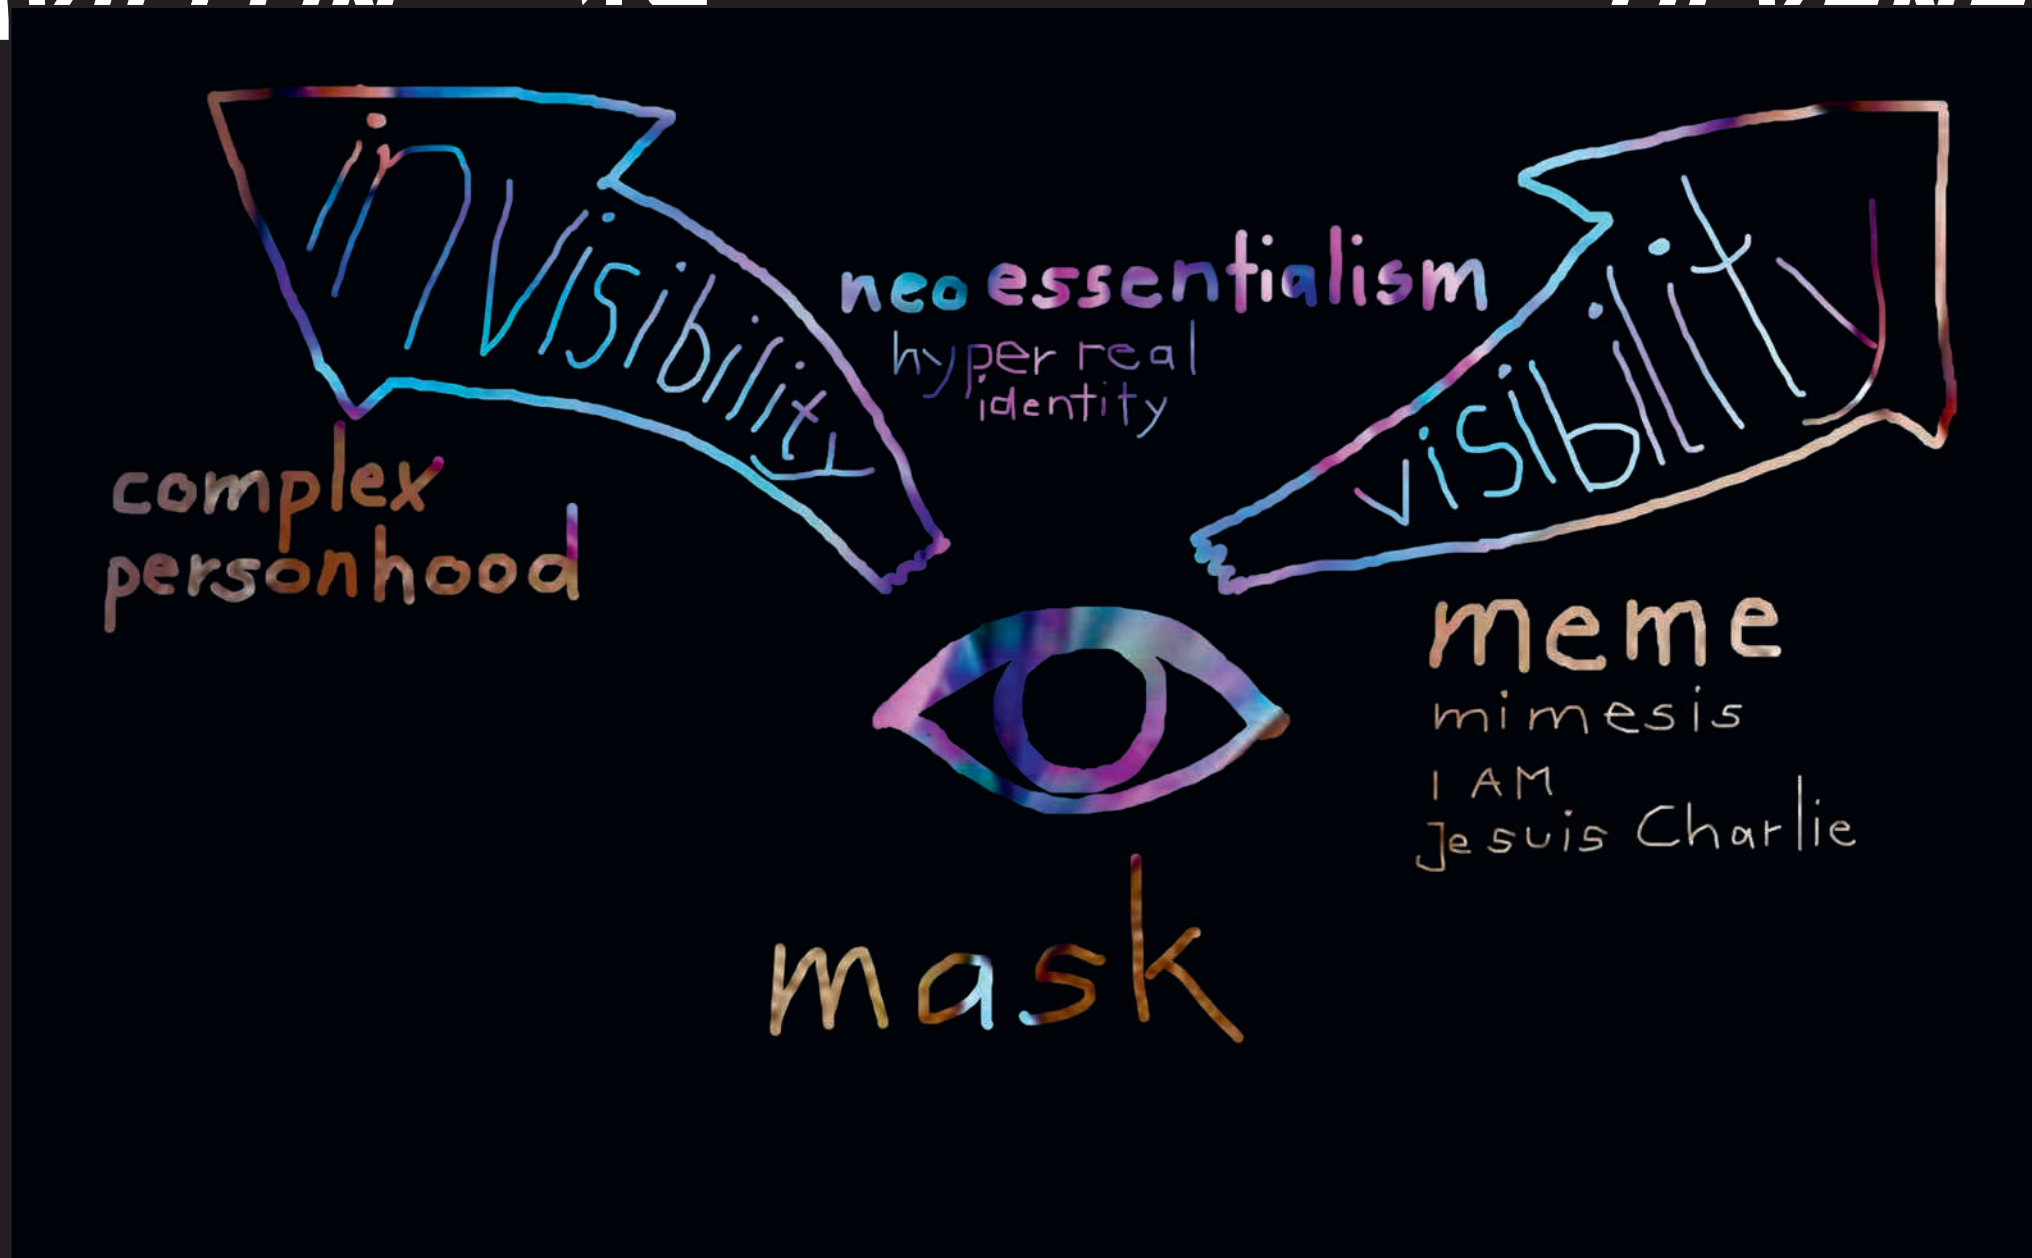 invisibility
neo essentialism
hyper real
identity
visibility
complex
personhood
meme
mimesis
I AM
Je suis Charlie
mask